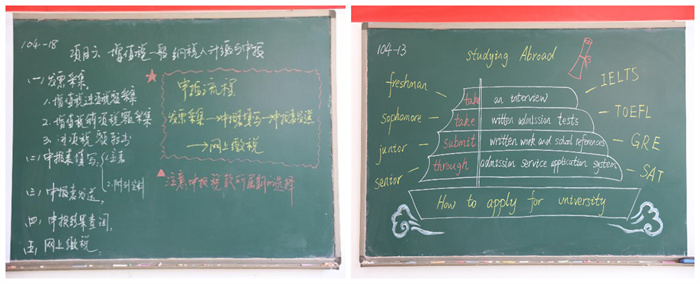 104-18
项目六 增值税一般纳税人计缴与申报
(一)发票采集
1.增值税进项税额采集
2.增值税销项税额采集
3.进项税额转出
(二)申报表填写
1.主表
2.附列资料
(三)申报表发送
(四)申报结果查询
(五)网上缴税
申报流程
发票采集→申报表填写→申报表发送
→网上缴税
注意申报税款所属期的选择
104-13
studying Abroad
freshman
Sophomore
junior
senior
take an interview
take written admission tests
submit written work and school references
through admission service application system
How to apply for university
IELTS
TOEFL
GRE
SAT